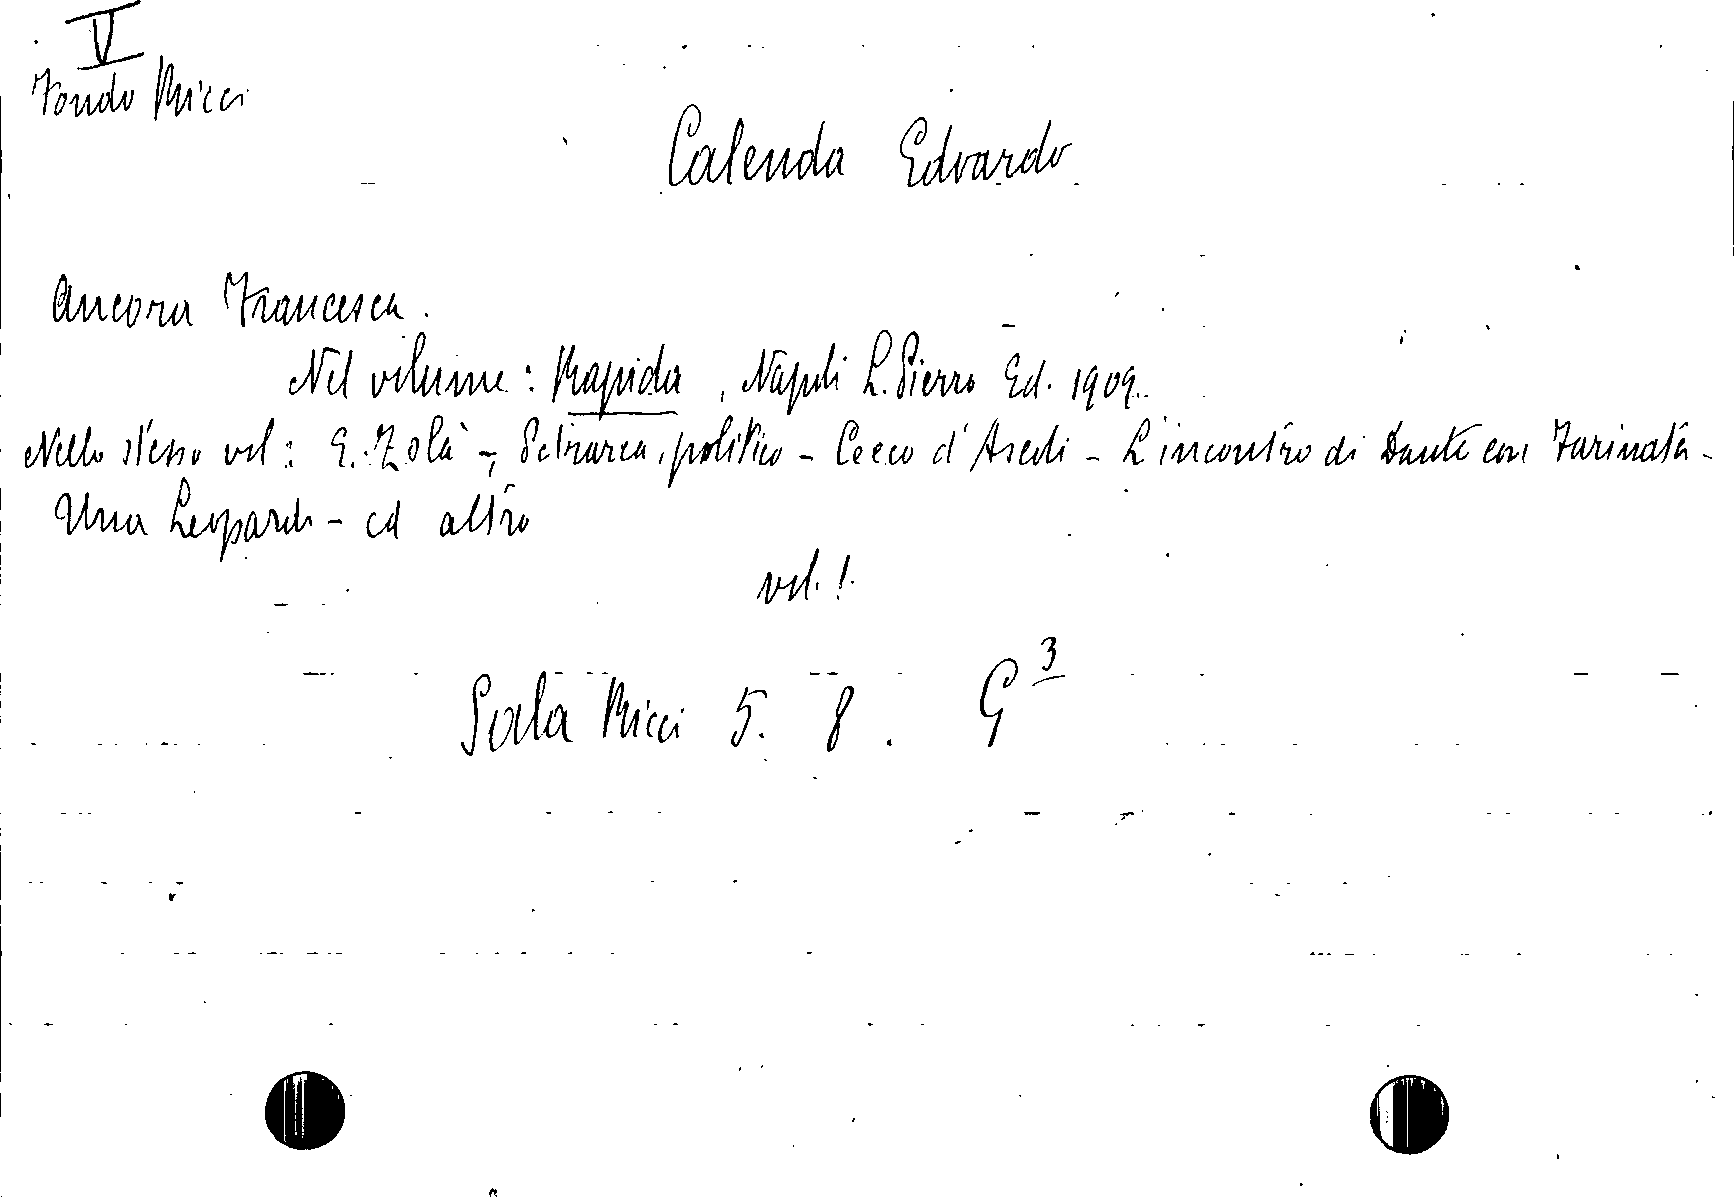 V
Fondo Ricci
Calenda Edoardo
Ancora Francesca.
Nel volume: Rapida, Napoli L. Pierro Ed. 1909.
Nello stesso vol: E. Zolà - Petrarca, politico - Cecco d'Ascoli - L'incontro di Dante con Farinata -
Una Leopardi - ed altro
vol. 1.
Sala Ricci 5. 8. G 3